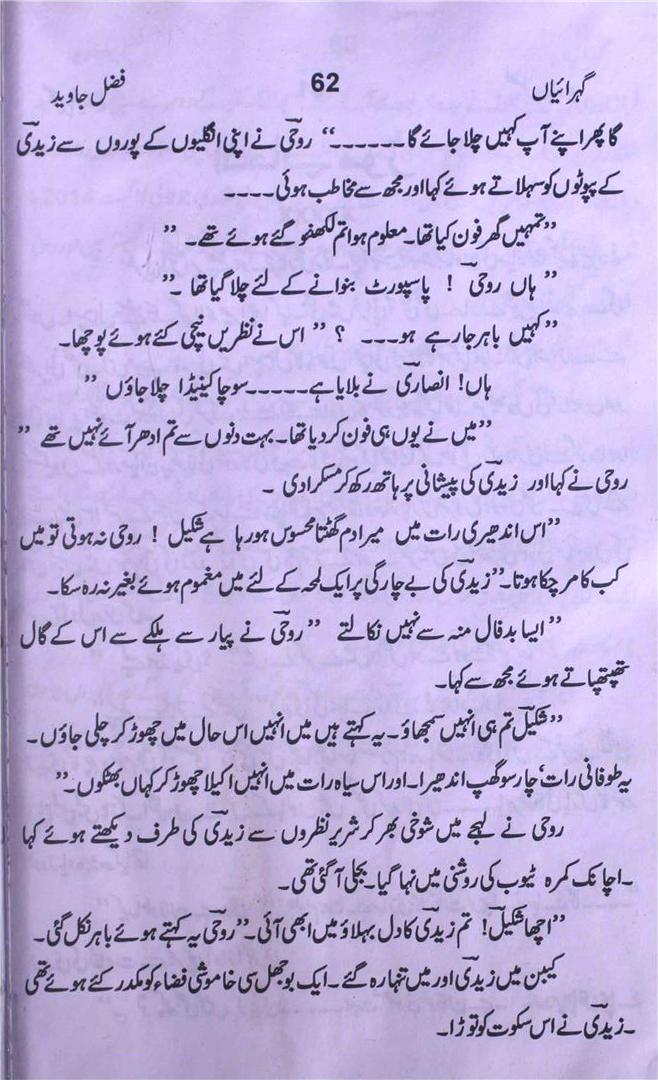 گہرائیاں 62 فضل جاوید
گا پھر اپنے آپ کہیں چلا جائے گا۔۔۔۔۔۔‘‘ روحیؔ نے اپنی انگلیوں کے پوروں سے زیدیؔ
کے پپوٹوں کو سہلاتے ہوئے کہا اور مجھ سے مخاطب ہوئی ۔۔۔۔
’’تمہیں گھر فون کیا تھا۔ معلوم ہوا تم لکھنو گئے ہوئے تھے۔ ‘‘
’’ ہاں روحیؔ ! پاسپورٹ بنوانے کے لئے چلا گیا تھا ۔‘‘
’’کہیں باہر جا رہے ہو۔۔۔ ؟ ‘‘ اس نے نظریں نیچی کئے ہوئے پوچھا۔
ہاں! انصاریؔ نے بلایا ہے۔۔۔۔۔سوچا کینیڈا چلا جاؤں ‘‘
’’میں نے یوں ہی فون کر دیا تھا۔ بہت دنوں سے تم ادھر آئے نہیں تھے ‘‘
روحی نے کہا اور زیدیؔ کی پیشانی پر ہاتھ رکھ کر مسکرا دی ۔
’’اس اندھیری رات میں میرا دم گھٹتا محسوس ہو رہا ہے شکیل ! روحی نہ ہوتی تو میں
کب کا مر چکا ہوتا۔‘‘ زیدیؔ کی بے چارگی پر ایک لمحہ کے لئے میں مغموم ہوئے بغیر نہ رہ سکا۔
’’ ایسا بدفال منہ سے نہیں نکالتے ‘‘ روحیؔ نے پیار سے ہلکے سے اس کے گال
تھپتھپاتے ہوئے مجھ سے کہا۔
’’شکیلؔ تم ہی انہیں سمجھاؤ۔ یہ کہتے ہیں میں انہیں اس حال میں چھوڑ کر چلی جاؤں۔
یہ طوفانی رات‘ چار سو گھپ اندھیرا۔ اور اس سیاہ رات میں انہیں اکیلا چھوڑ کر کہاں بھٹکوں۔‘‘
روحی نے لہجے میں شوخی بھر کر شریر نظروں سے زیدیؔ کی طرف دیکھتے ہوئے کہا
۔اچانک کمرہ ٹیوب کی روشنی میں نہا گیا۔ بجلی آ گئی تھی۔
’’اچھا شکیلؔ! تم زیدی کا دل بہلاؤ میں ابھی آئی۔‘‘ روحیؔ یہ کہتے ہوئے باہر نکل گئی۔
کیبن میں زیدیؔ اور میں تنہا رہ گئے۔ ایک بوجھل سی خاموشی فضاء کو مکدر کئے ہوئے تھی
۔ زیدیؔ نے اس سکوت کو توڑا۔